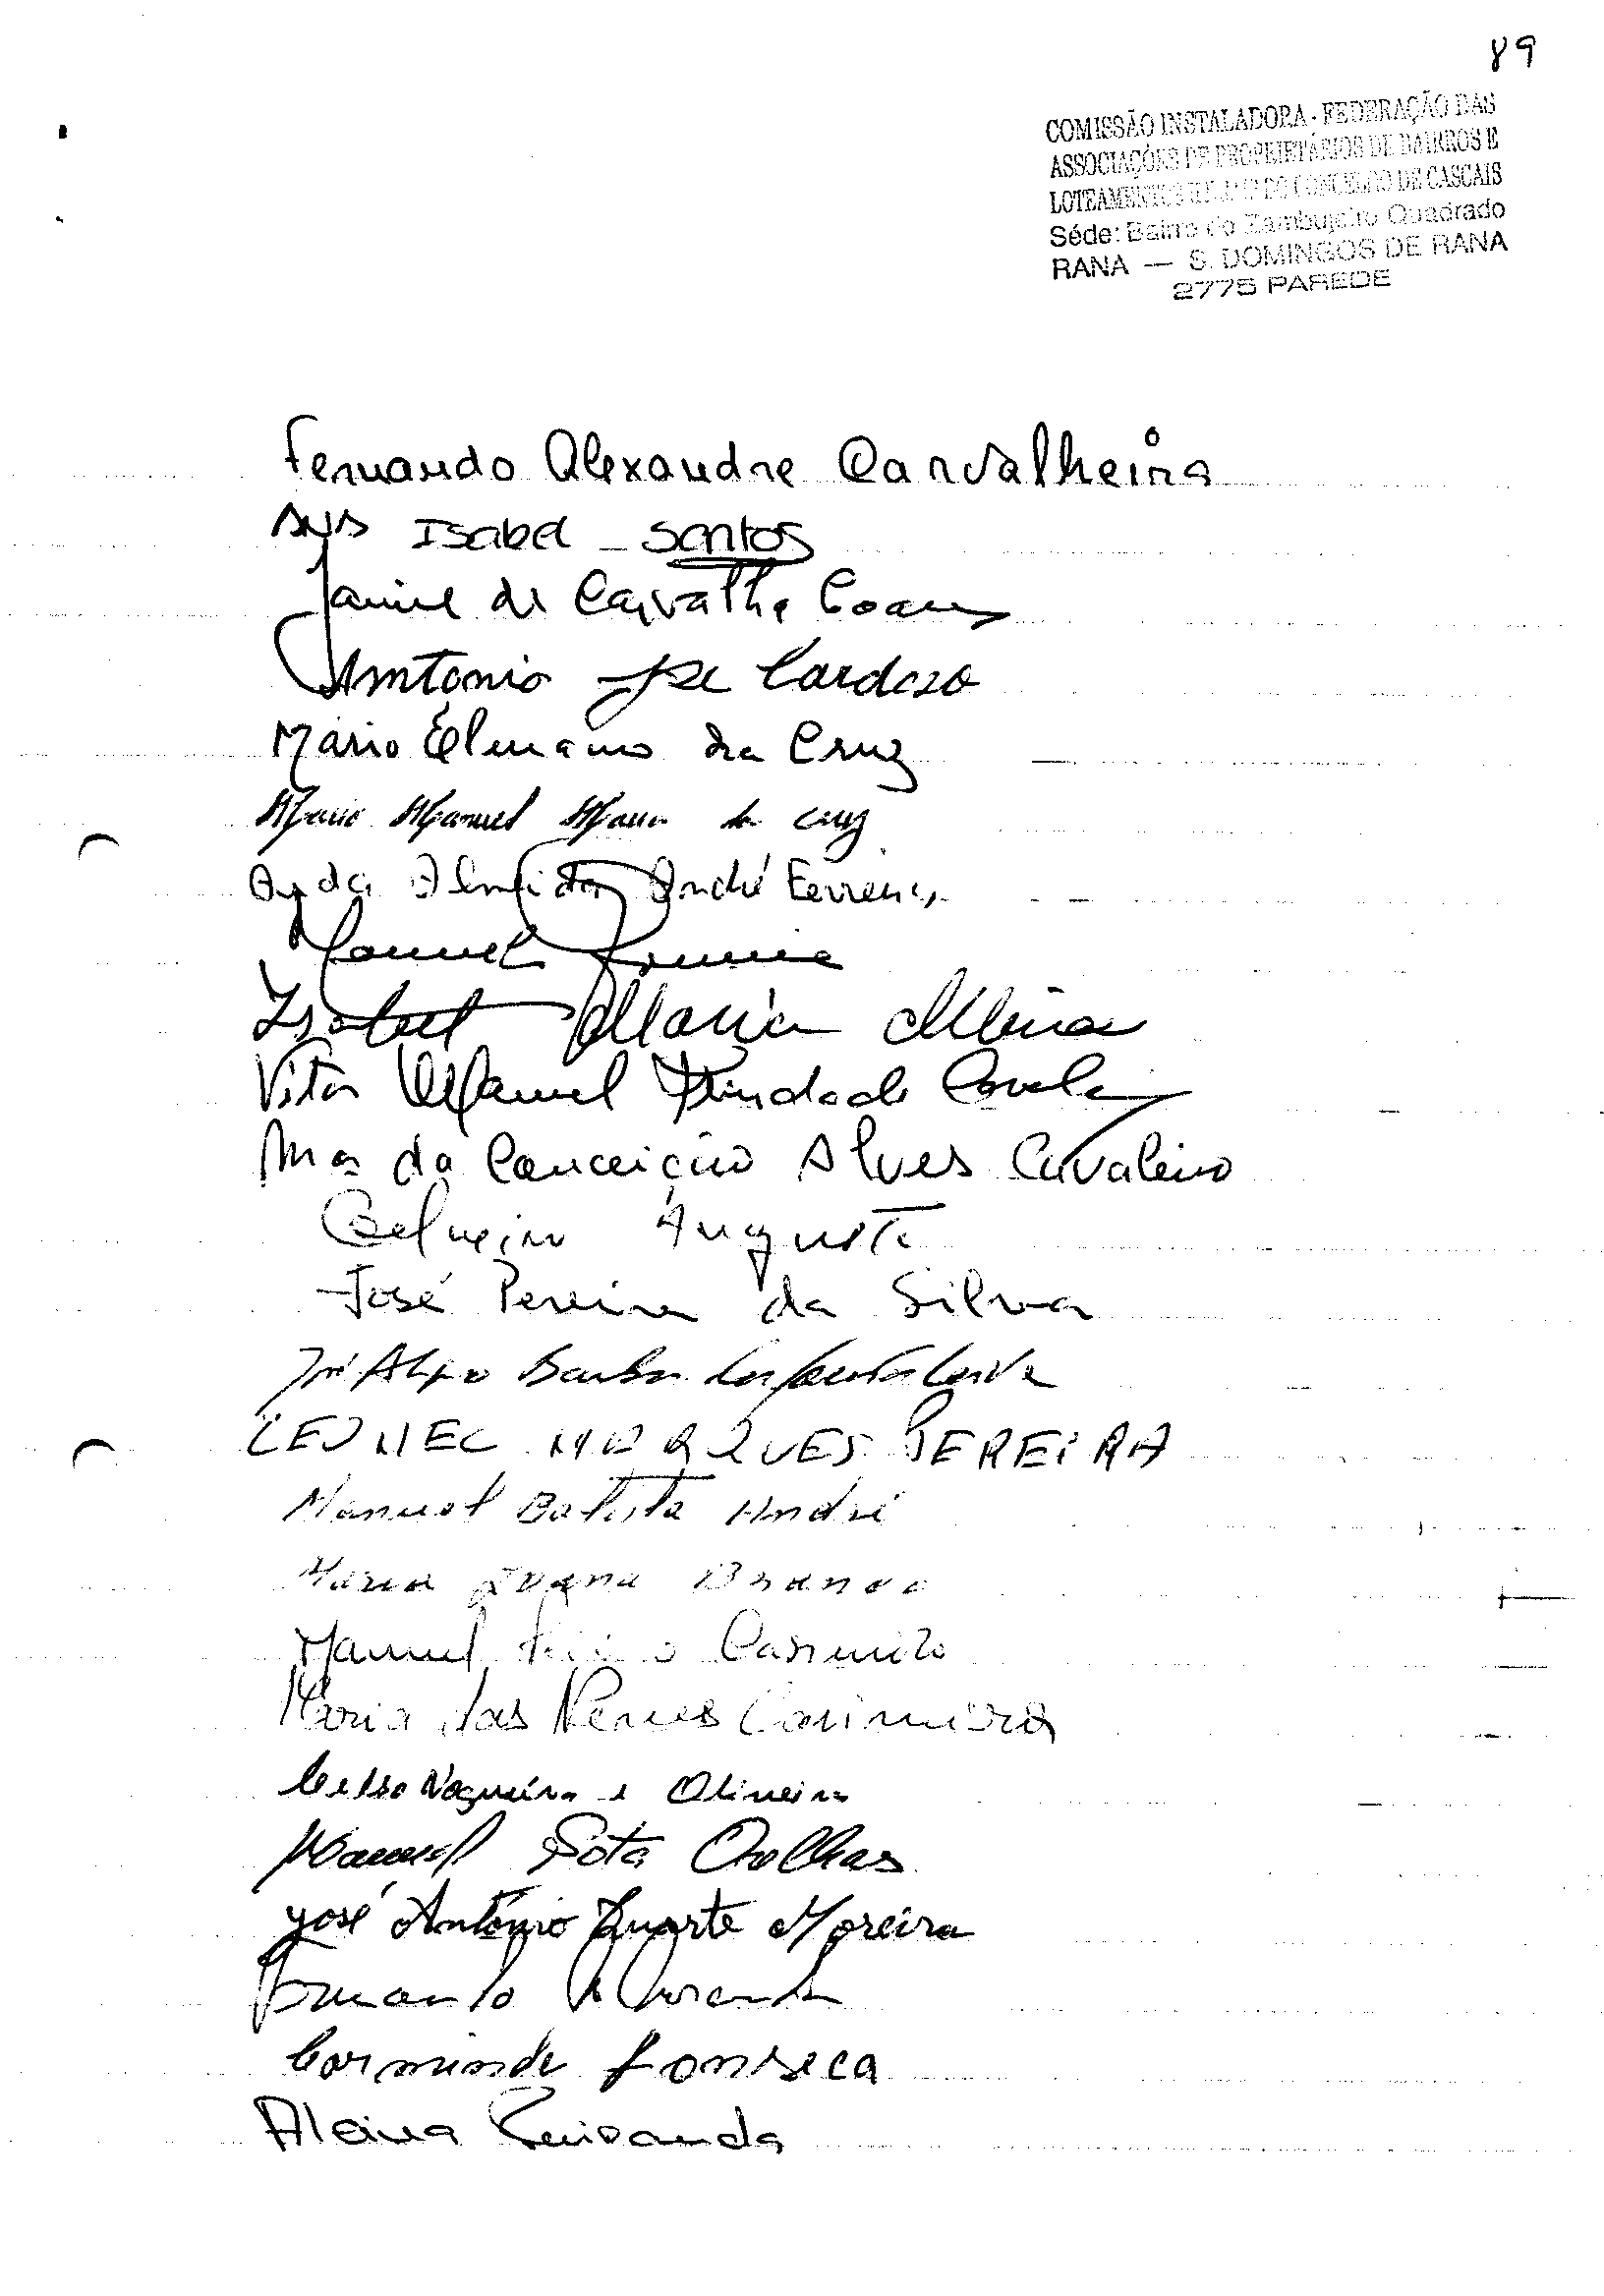 89
COMISSÃO INSTALADORA - FEDERAÇÃO DAS
ASSOCIAÇÕES DE PROPRIETÁRIOS DE BAIRROS E
LOTEAMENTOS DO CONCELHO DE CASCAIS
Séde: Bairro do Zambujeiro Quadrado
RANA — S. DOMINGOS DE RANA
2775 PAREDE
Fernando Alexandre Carvalheira
Isabel Santos
Jaime de Carvalho
Antonio José Cardoso
Mário Elmano da Cruz
Mario Manuel da Cruz
Almeida André Ferreira
Manuel Ferreira
Isabel Maria
Vitor Manuel Trindade
Mª da Conceição Alves Cavaleiro
Augusto
José Pereira da Silva
LEONEL MARQUES PEREIRA
Manuel Batista André
Maria Branco
Manuel Casimiro
Maria das Neves Casimiro
Celso Nogueira e Oliveira
Manuel Sota
José António Duarte Moreira
Carminda Fonseca